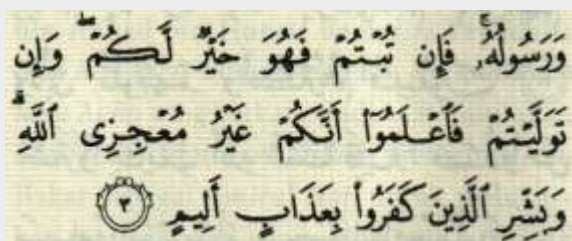 وَرَسُولُهُۥۚ فَإِن تُبْتُمْ فَهُوَ خَيْرٌ لَّكُمْۖ وَإِن
تَوَلَّيْتُمْ فَٱعْلَمُوٓا۟ أَنَّكُمْ غَيْرُ مُعْجِزِى ٱللَّهِۗ
وَبَشِّرِ ٱلَّذِينَ كَفَرُوا۟ بِعَذَابٍ أَلِيمٍ ٣